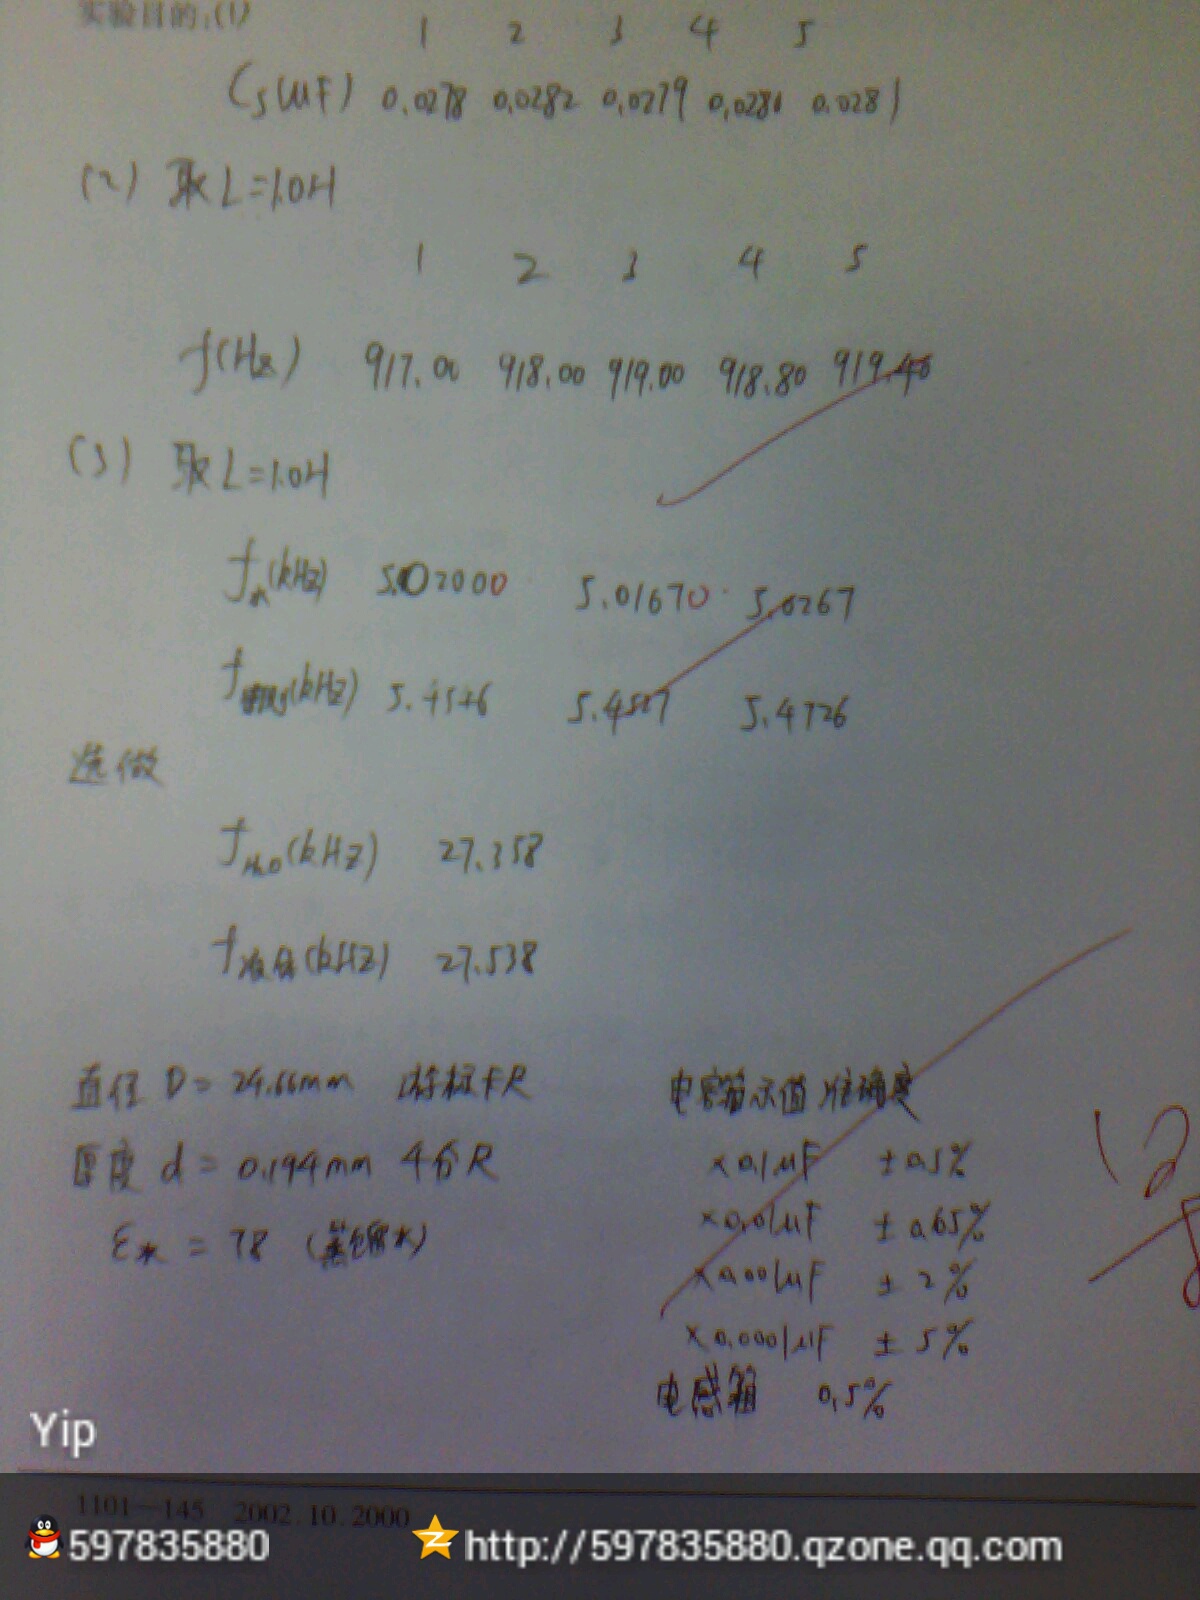 实验目的:(1)
1 2 3 4 5
Cs(μF) 0.0278 0.0282 0.0279 0.0280 0.0281
(2) 取L=1.0H
1 2 3 4 5
f(Hz) 917.00 918.00 919.00 918.80 919.40
(3) 取L=1.0H
f (kHz) 5.02000 5.01670 5.0267
f (kHz) 5.4546 5.4567 5.4726
选做
fH₂O(kHz) 27.358
f液体(kHz) 27.538
直径 D = 24.66mm 游标卡尺
厚度 d = 0.194mm 千分尺
ε水 = 78 (蒸馏水)
电容箱示值 准确度
×0.1μF ±0.5%
×0.01μF ±0.65%
×0.001μF ±2%
×0.0001μF ±5%
电感箱 0.5%
12
Yip
1101—145 2002.10.2000
597835880 http://597835880.qzone.qq.com